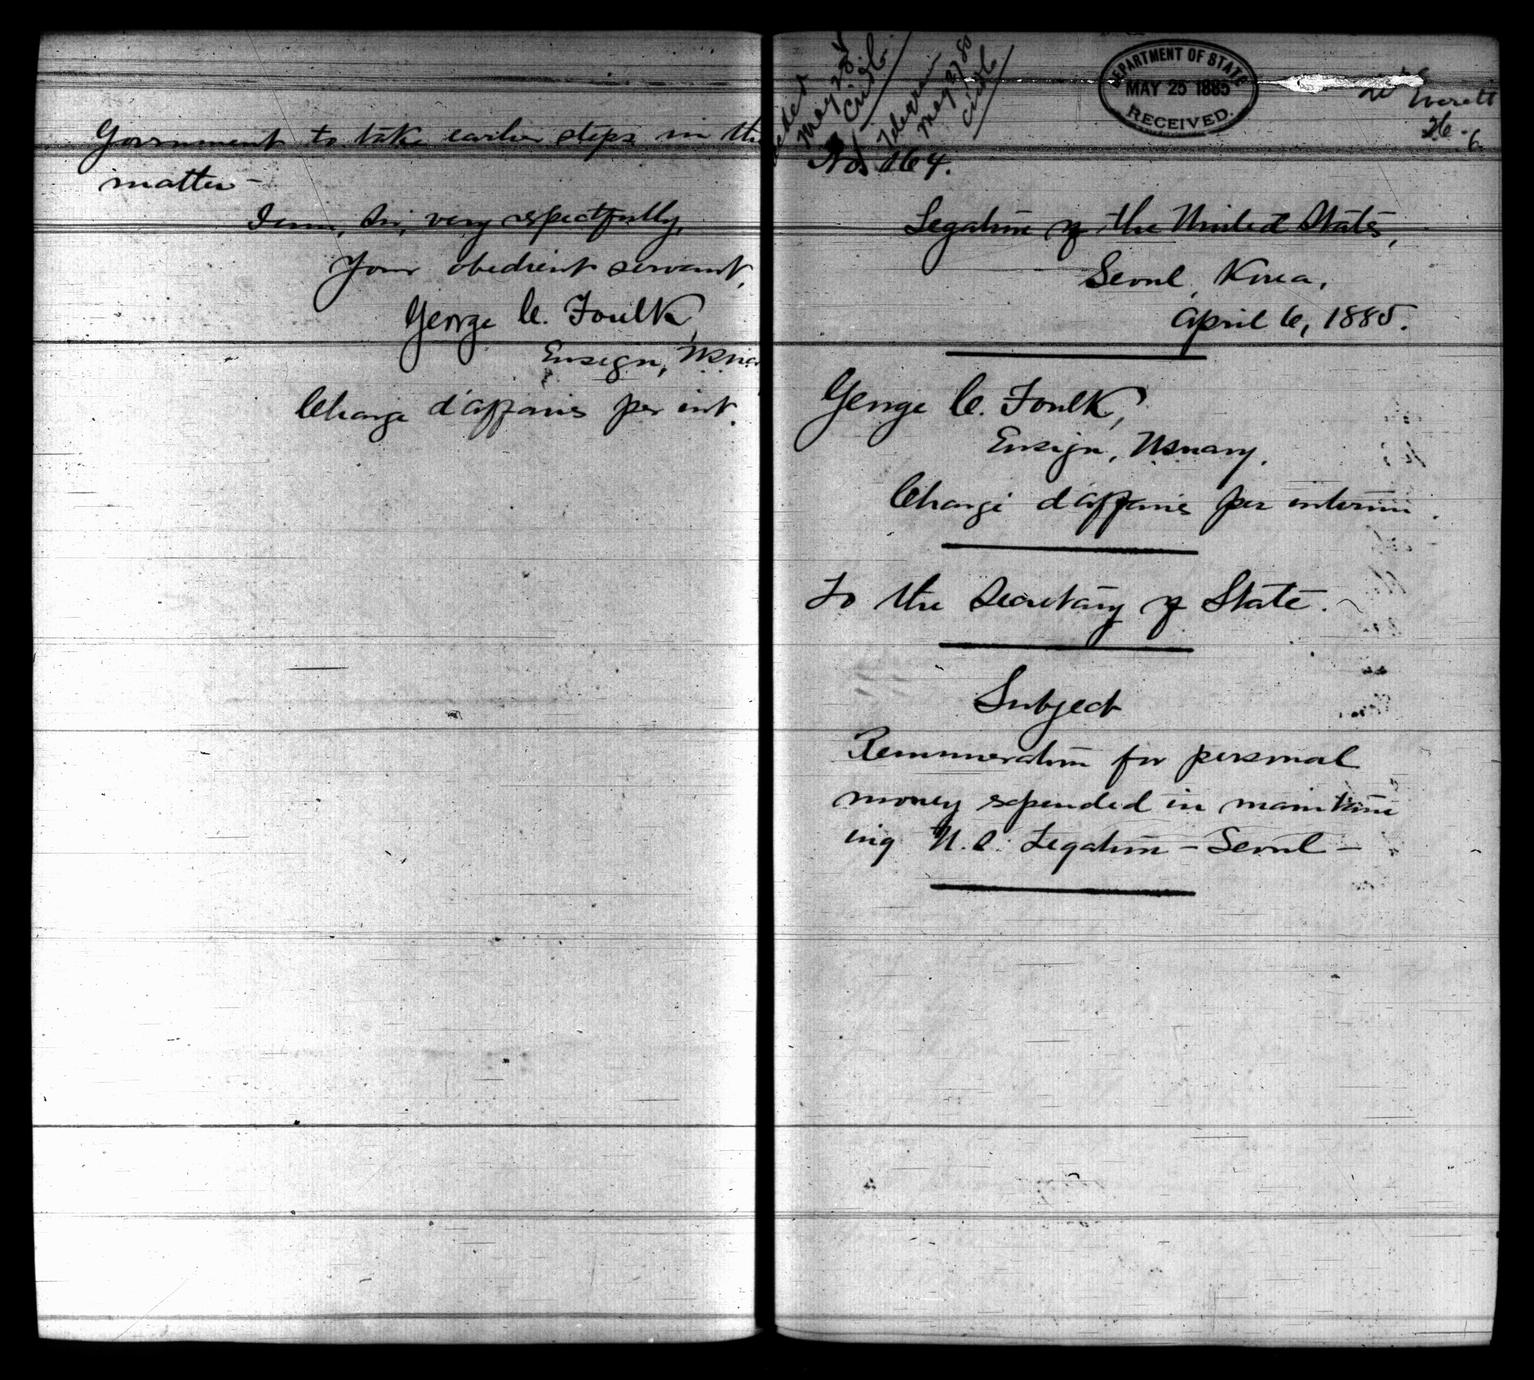 Government to take earlier steps in the
matter -
I am, Sir, very respectfully,
Your obedient servant,
George C. Foulk,
Ensign, U.S. Navy
Charge d'affaires per int.
May 28
Civil
Telegram
May 27 85
Civil
DEPARTMENT OF STATE
MAY 25 1885
RECEIVED.
Everett
26 - 6
No. 164.
Legation of the United States,
Seoul, Korea,
April 6, 1885.
George C. Foulk,
Ensign, U.S. Navy.
Chargé d'affaires per interim.
To the Secretary of State.
Subject
Remuneration for personal
money expended in maintain
ing U.S. Legation - Seoul -